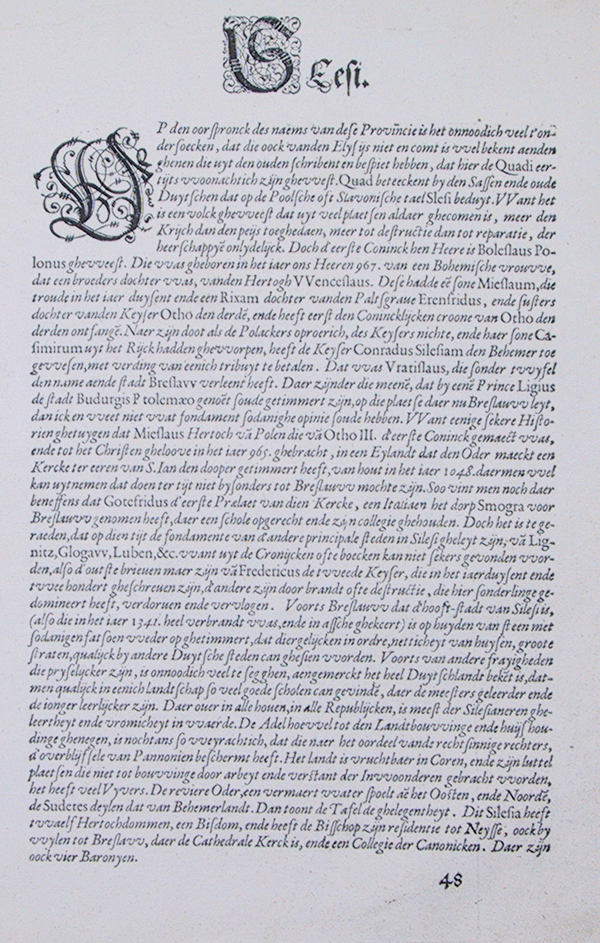 SLesi.
OP den oorspronck des naems van dese Provincie is het onnoodich veel t'on-
dersoecken, dat die oock vanden Elysijs niet en comt is vvel bekent aenden
ghenen die uyt den ouden schribenten bespiet hebben, dat hier de Quadi eer-
tijts vvoonachtich zijn ghevvest. Quad beteeckent by den Sassen ende oude
Duytschen dat op de Poolsche oft Slavonische tael Slesi beduyt. VVant het
is een volck ghevveest dat uyt veel plaetsen aldaer ghecomen is, meer den
Krijch dan den peijs toeghedaen, meer tot destructie dan tot reparatie, der
heerschappyē onlydelijck. Doch d'eerste Coninck hen Heere is Boleslaus Po-
lonus ghevveest. Die vvas gheboren in het iaer ons Heeren 967. van een Bohemische vrouvve,
dat een broeders dochter vvas, vanden Hertogh VVenceslaus. Dese hadde eē sone Mieslaum, die
troude in het iaer duysent ende een Rixam dochter vanden Paltsgraue Erenfridus, ende susters
dochter vanden Keyser Otho den derdē, ende heeft eerst den Conincklijcken croone van Otho den
derden ontfangē. Naer zijn doot als de Polackers oproerich, des Keysers nichte, ende haer sone Ca-
simirum uyt het Rijck hadden ghevvorpen, heeft de Keyser Conradus Silesiam den Behemer toe
gevvesen, met verding van eenich tribuyt te betalen. Dat vvas Vratislaus, die sonder tvvyfel
den name aende stadt Breslavv verleent heeft. Daer zijnder die meenē, dat by eenē Prince Ligius
de stadt Budurgis Ptolemæo genoēt soude getimmert zijn, op die plaetse daer nu Breslauvv leyt,
dan ick en vveet niet vvat fondament sodanighe opinie soude hebben. VVant eenige sekere Histo-
rien ghetuygen dat Mieslaus Hertoch vā Polen die vā Otho III. d'eerste Coninck gemaect vvas,
ende tot het Christen gheloove in het iaer 965. ghebracht, in een Eylandt dat den Oder maeckt een
Kercke ter eeren van S. Ian den dooper getimmert heeft, van hout in het iaer 1048. daer men vvel
kan uytnemen dat doen ter tijt niet bysonders tot Breslauvv mochte zijn. Soo vint men noch daer
beneffens dat Gotefridus d'eerste Prælaet van dien Kercke, een Italiaen het dorp Smogra voor
Breslauvv genomen heeft, daer een schole opgerecht ende zijn collegie ghehouden. Doch het is te ge-
raeden, dat op dien tijt de fondamente van d'andere principale steden in Silesi gheleyt zijn, vā Lig-
nitz, Glogavv, Luben, &c. vvant uyt de Cronijcken ofte boecken kan niet sekers gevonden vvor-
den, also d'outste brieuen maer zijn vā Fredericus de tvveede Keyser, die in het iaer duysent ende
tvvee hondert gheschreuen zijn, d'andere zijn door brandt ofte destructie, die hier sonderlinge ge-
domineert heeft, verdoruen ende vervlogen. Voorts Breslauvv dat d'hooft-stadt van Silesi is,
(also die in het iaer 1341. heel verbrandt vvas, ende in assche ghekeert) is op huyden van steen met
sodanigen fatsoen vveder op ghetimmert, dat diergelijcken in ordre, netticheyt van huysen, groote
straten, qualijck by andere Duytsche steden can ghesien vvorden. Voorts van andere frayigheden
die pryselijcker zijn, is onnoodich veel te segghen, aengemerckt het heel Duytschlandt bekēt is, dat-
men qualijck in eenich landtschap so veel goede scholen can gevindē, daer de meesters geleerder ende
de ionger leerlijcker zijn. Daer ouer in alle houen, in alle Republijcken, is meest der Silesianeren ghe-
leertheyt ende vromicheyt in vvaerde. De Adel hoevvel tot den Landtbouvvinge ende huijs hou-
dinge ghenegen, is nochtans so vveyrachtich, dat die naer het oordeel vande recht sinnige rechters,
d'overblijfsele van Pannonien beschermt heeft. Het landt is vruchtbaer in Coren, ende zijn luttel
plaetsen die niet tot bouvvinge door arbeyt ende verstant der Invvoonderen gebracht vvorden,
het heeft veel Vyvers. De reviere Oder, een vermaert vvater spoelt aē het Oosten, ende Noordē,
de Sudetes deylen dat van Behemerlandt. Dan toont de Tafel de ghelegentheyt. Dit Silesia heeft
tvvaelf Hertochdommen, een Bisdom, ende heeft de Bisschop zijn residentie tot Neysse, oock by
vvylen tot Breslavv, daer de Cathedrale Kerck is, ende een Collegie der Canonicken. Daer zijn
oock vier Baronyen.
48